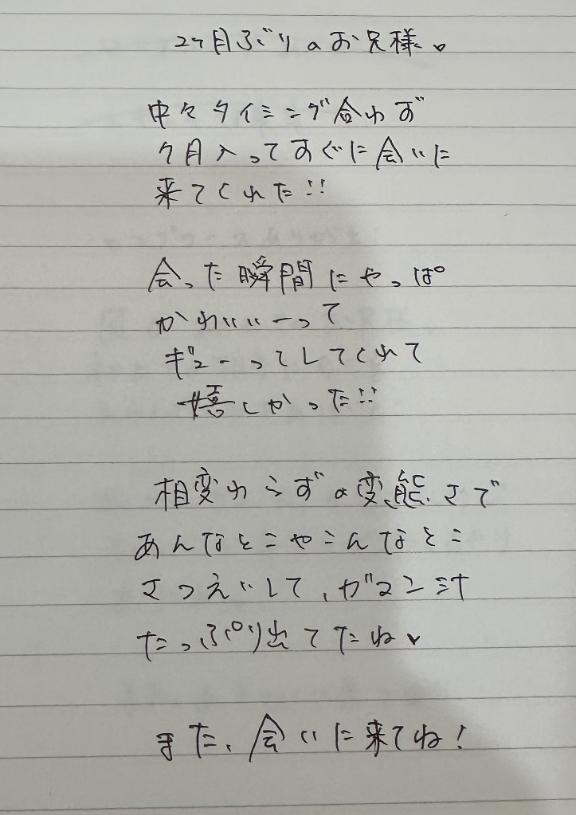 2ヶ月ぶりのお兄様♥
中々タイミング合わず
今月入ってすぐに会いに
来てくれた!!
会った瞬間にやっぱ
かわいいーって
ギューってしてくれて
嬉しかった!!
相変わらずの変態さで
あんなとこやこんなとこ
さつえいして、ガマン汁
たっぷり出てたね♥
また、会いに来てね!